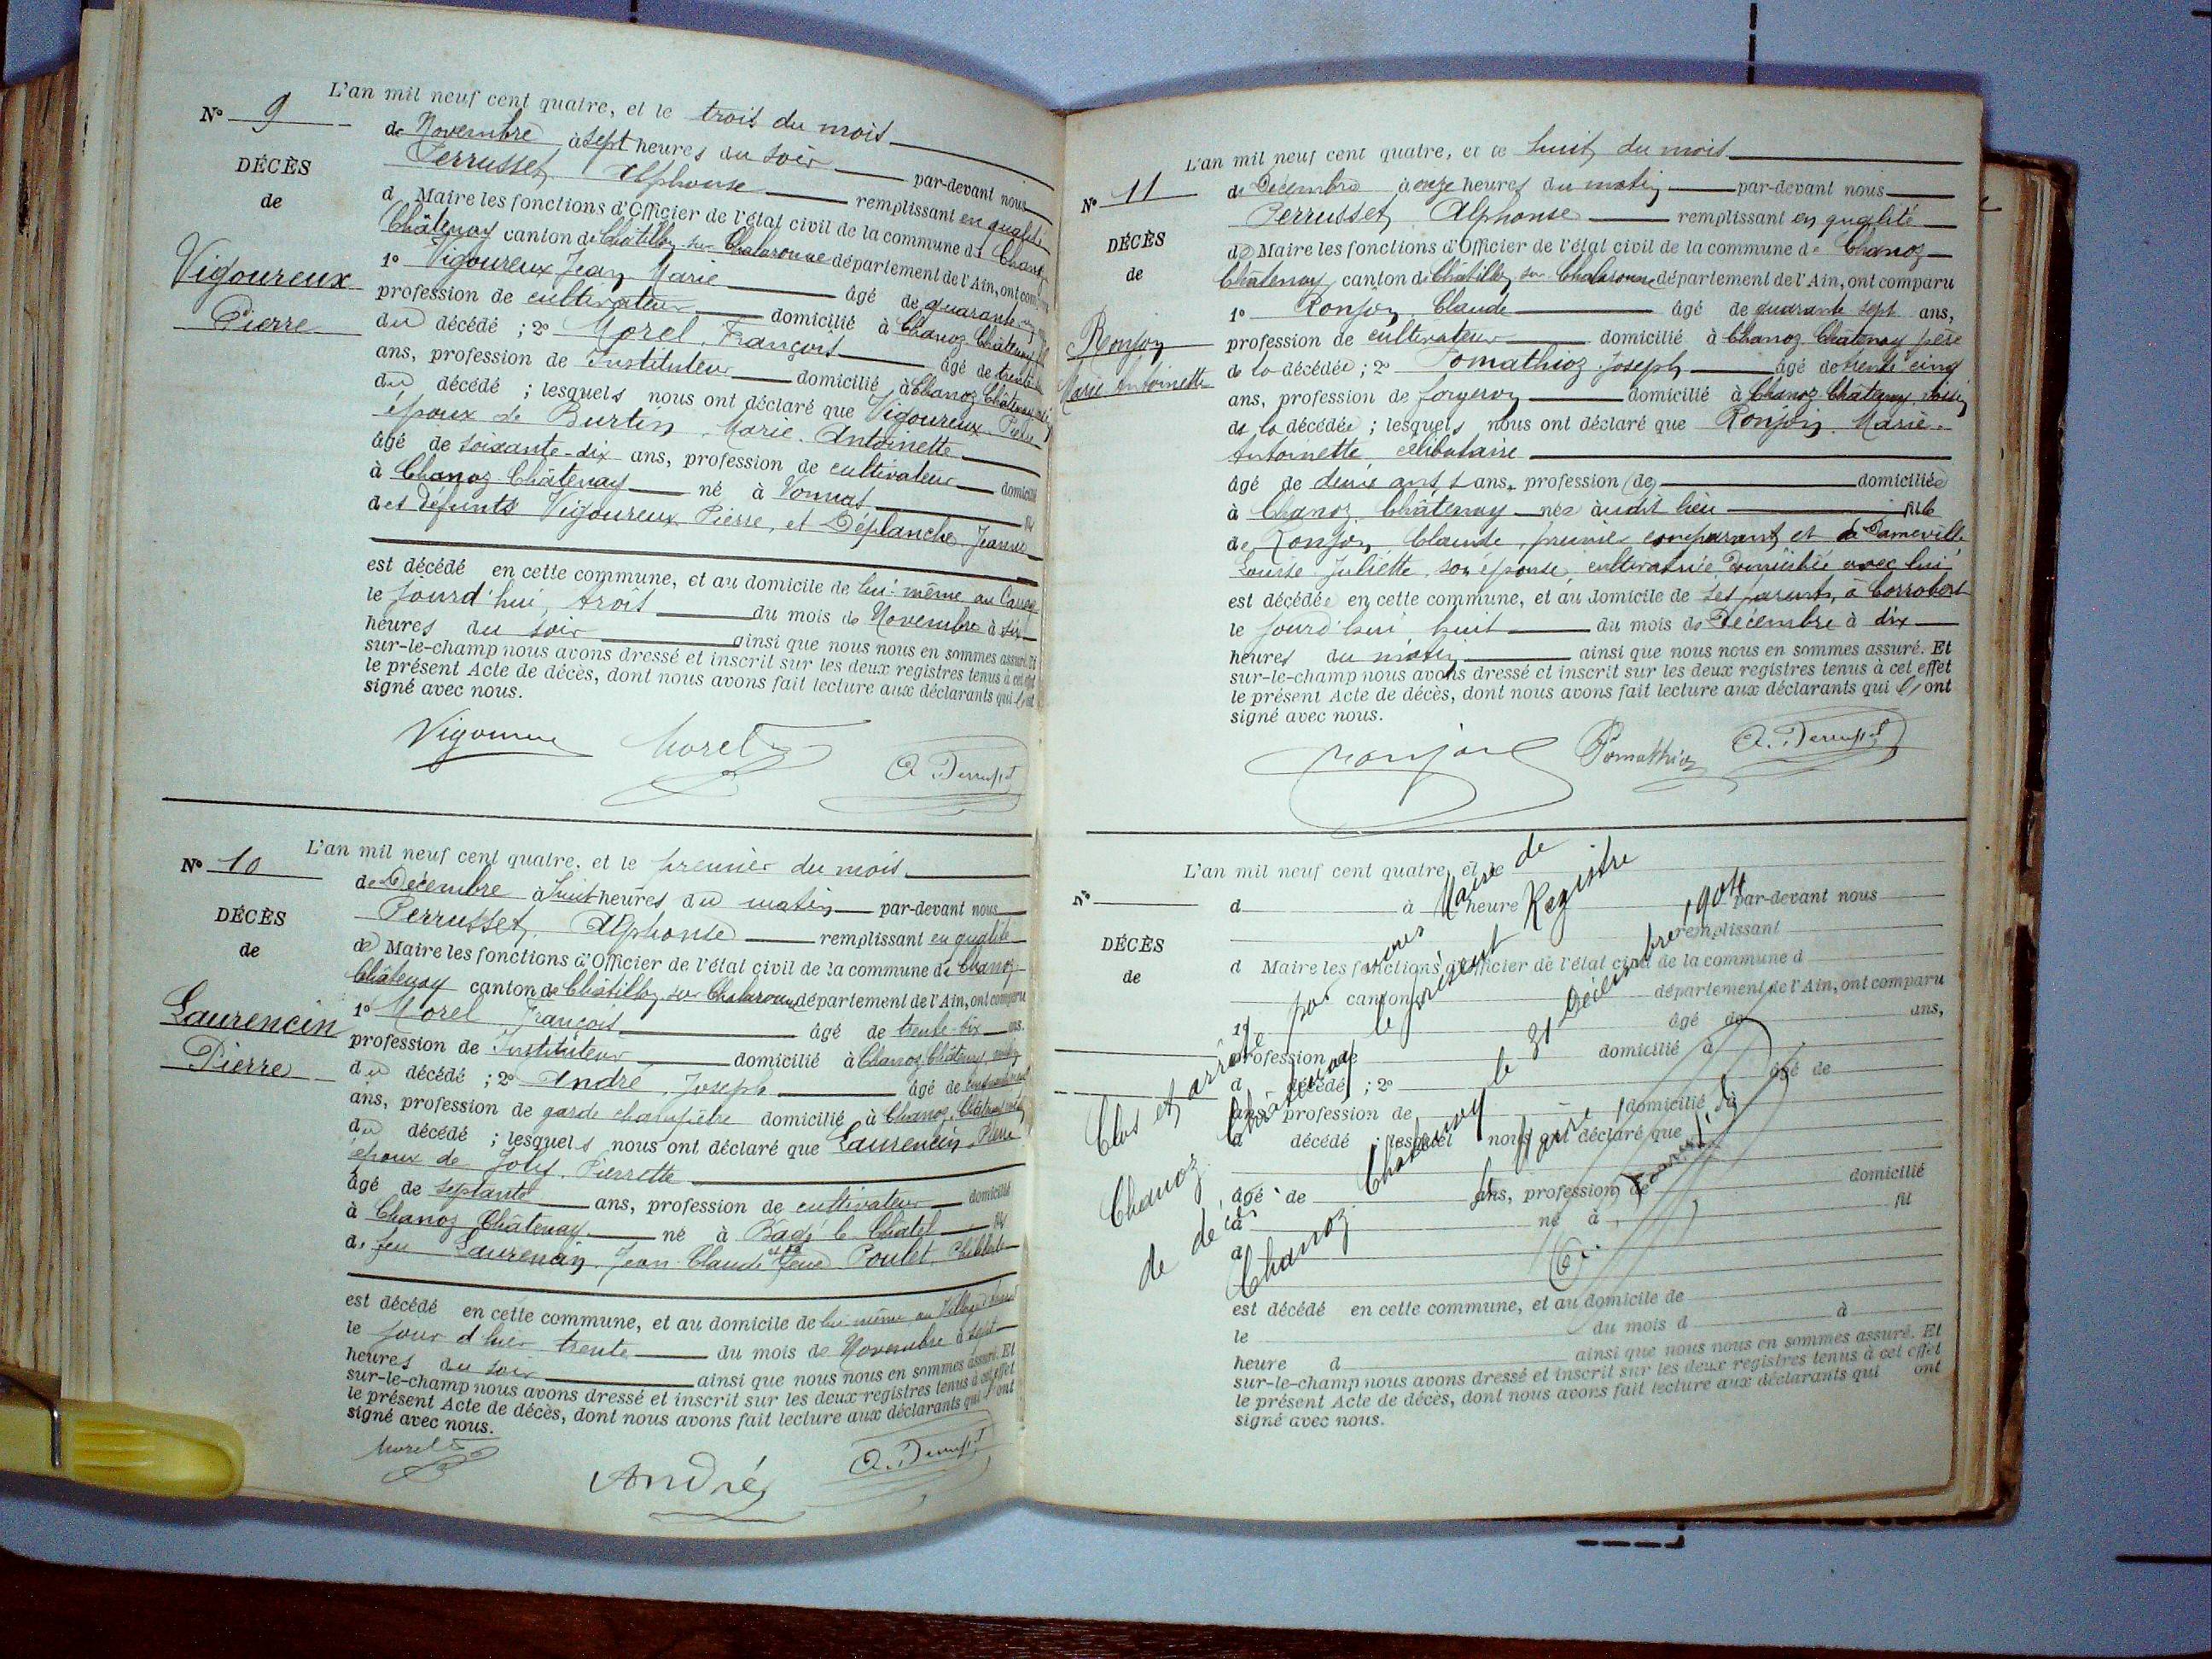 L'an mil neuf cent quatre, et le trois du mois
N° 9
de Novembre à sept heures du soir par-devant nous
Perrusset Alphonse remplissant en qualité
DÉCÈS
de
d Maire les fonctions d'Officier de l'état civil de la commune de Chanoz
Châtenay canton de Châtillon sur Chalaronne département de l'Ain, ont comparu
Vigoureux
Pierre
1° Vigoureux Jean Marie âgé de quarante
profession de cultivateur domicilié à Chanoz Châtenay
du décédé ; 2° Morel François âgé de trente
ans, profession de Instituteur domicilié à Chanoz Châtenay
du décédé ; lesquels nous ont déclaré que Vigoureux Pierre
époux de Burtin Marie Antoinette
âgé de soixante-dix ans, profession de cultivateur domicilié
à Chanoz Châtenay né à Vonnas fils
des défunts Vigoureux Pierre, et Déplanche Jeanne
est décédé en cette commune, et au domicile de lui-même au
le jourd'hui trois du mois de Novembre à six
heures du soir ainsi que nous nous en sommes assuré. Et
sur-le-champ nous avons dressé et inscrit sur les deux registres tenus à cet effet
le présent Acte de décès, dont nous avons fait lecture aux déclarants qui
signé avec nous.
Vigoureux Morel A. Perrusset
L'an mil neuf cent quatre, et le premier du mois
N° 10
de Décembre à huit heures du matin par-devant nous
Perrusset Alphonse remplissant en qualité
DÉCÈS
de
de Maire les fonctions d'Officier de l'état civil de la commune de Chanoz
Châtenay canton de Châtillon sur Chalaronne département de l'Ain, ont comparu
Laurencin
Pierre
1° Morel François âgé de trente-six ans.
profession de Instituteur domicilié à Chanoz Châtenay
du décédé ; 2° André Joseph âgé de
ans, profession de garde champêtre domicilié à Chanoz Châtenay
du décédé ; lesquels nous ont déclaré que Laurencin Pierre
époux de Joly Pierrette
âgé de septante ans, profession de cultivateur domicilié
à Chanoz Châtenay né à Bagé le Chatel fils
de feu Laurencin Jean Claude et de feue Poulet Philiberte
est décédé en cette commune, et au domicile de lui-même au
le jour d'hier trente du mois de Novembre à sept
heures du soir ainsi que nous nous en sommes assuré. Et
sur-le-champ nous avons dressé et inscrit sur les deux registres tenus à cet effet
le présent Acte de décès, dont nous avons fait lecture aux déclarants qui ont
signé avec nous.
Morel André A. Perrusset
L'an mil neuf cent quatre, et le huit du mois
N° 11
de Décembre à onze heures du matin par-devant nous
Perrusset Alphonse remplissant en qualité
DÉCÈS
de
de Maire les fonctions d'Officier de l'état civil de la commune de Chanoz
Châtenay canton de Châtillon sur Chalaronne département de l'Ain, ont comparu
Ronjon
Marie Antoinette
1° Ronjon Claude âgé de quarante sept ans,
profession de cultivateur domicilié à Chanoz Châtenay père
de la décédée ; 2° Pomathioz Joseph âgé de trente cinq
ans, profession de forgeron domicilié à Chanoz Châtenay voisin
de la décédée ; lesquels nous ont déclaré que Ronjon Marie
Antoinette célibataire
âgé de deux ans ans, profession de domiciliée
à Chanoz Châtenay née audit lieu fille
de Ronjon Claude, premier comparant et de Dameville
Louise Juliette son épouse, cultivatrice domiciliée avec lui
est décédée en cette commune, et au domicile de ses parents, à Corrobert
le jourd'hui huit du mois de Décembre à dix
heures du matin ainsi que nous nous en sommes assuré. Et
sur-le-champ nous avons dressé et inscrit sur les deux registres tenus à cet effet
le présent Acte de décès, dont nous avons fait lecture aux déclarants qui ont
signé avec nous.
Ronjon Pomathioz A. Perrusset
L'an mil neuf cent quatre, et le
N°
d à heure par-devant nous
remplissant
DÉCÈS
de
d Maire les fonctions d'Officier de l'état civil de la commune d
canton département de l'Ain, ont comparu
1° âgé de ans,
profession de domicilié à
d décédé ; 2° âgé de
ans, profession de domicilié à
d décédé ; lesquel nous ont déclaré que
âgé de ans, profession de domicilié
à né à fil
d
est décédé en cette commune, et au domicile de
le du mois d à
heure d ainsi que nous nous en sommes assuré. Et
sur-le-champ nous avons dressé et inscrit sur les deux registres tenus à cet effet
le présent Acte de décès, dont nous avons fait lecture aux déclarants qui ont
signé avec nous.
Clos et arrêté par nous Maire de
Chanoz Châtenay le présent Registre
de décès
Chanoz Châtenay le 31 Décembre 1904
Le Maire
A. Perrusset